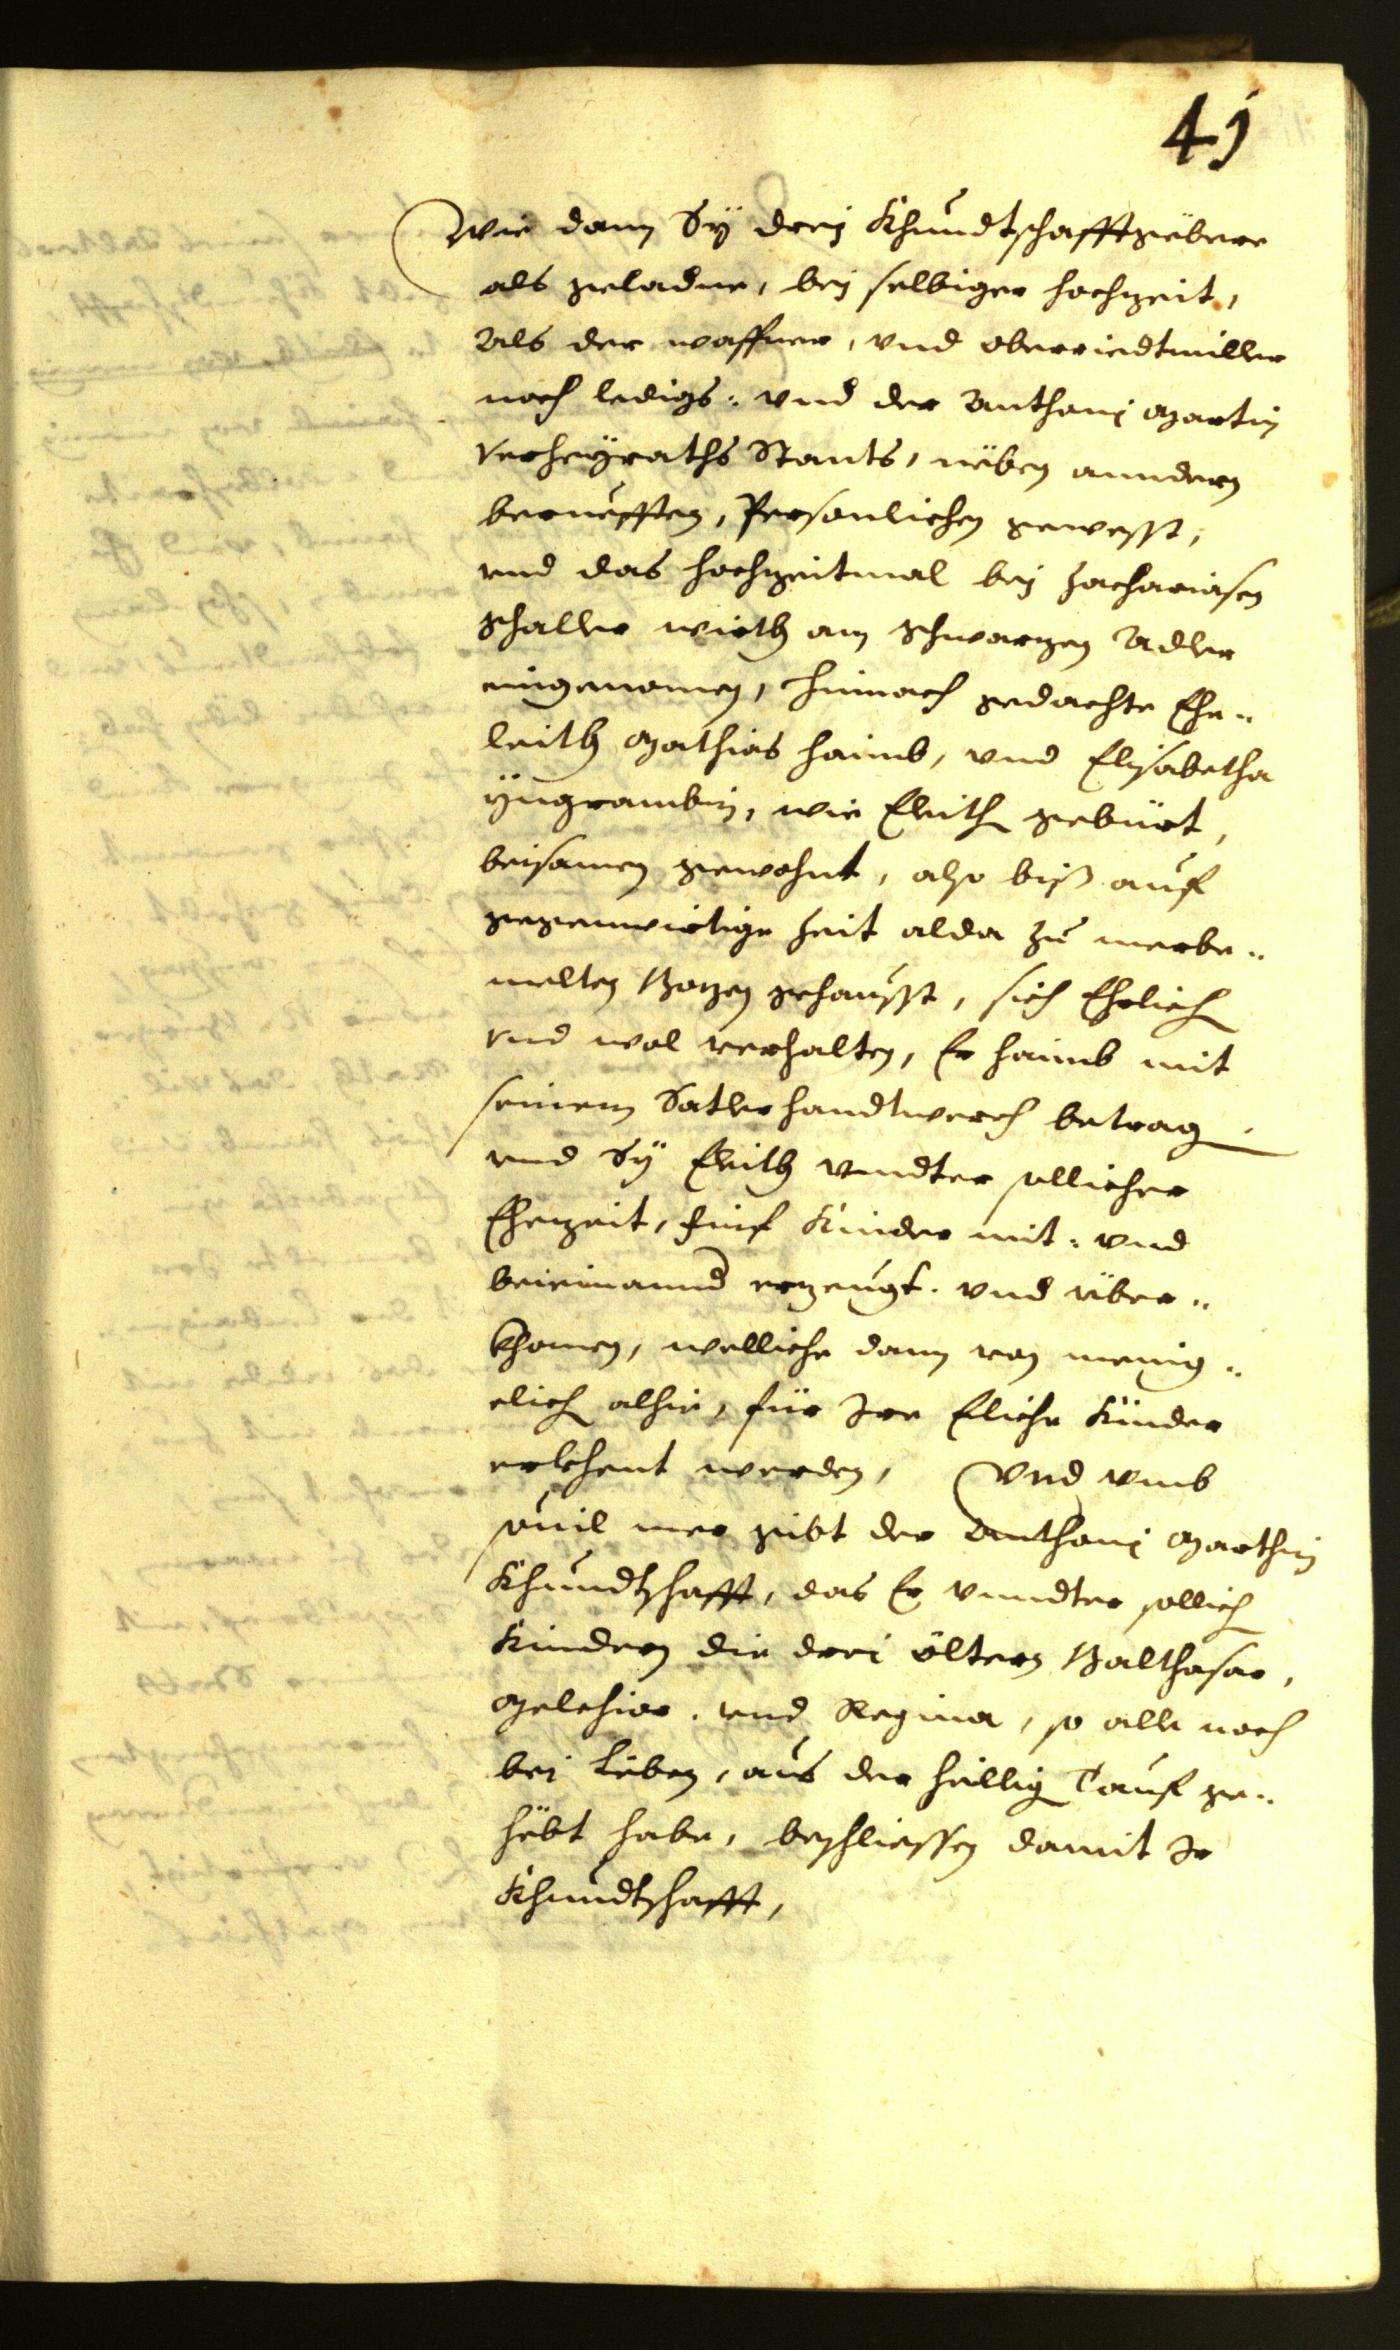 41
Wie dann Sÿ dreÿ Khundtschafftgebere
als geladne, beÿ selbiger hochzeit,
Als der waffner, vnd oberriedtmiller
noch ledigs: vnd der Anthonj Martin
verheÿraths Stants, neben anndern
beruefften, Persönlichen gewesst,
vnd das hochzeitmal beÿ Zachariasen
Schaller wirth am Schwarzen Adler
eingenomen, hinnach gedachte Ehe„
leith Mathias haimb, vnd Elisabetha
Yngrambin, wie Eleith gebürt,
beisamen gewohnt, also biß auf
gegenwirtige Zeit alda zu merbe„
melten Bozen gehausst, sich Ehrlich
vnd wol verhalten, Er haimb mit
seinem Satlerhandtwerch betragn,
vnd Sÿ Eleith vnndter sollicher
Ehezeit, fünf Kinder mit: vnd
beieinannd erzeugt. vnd über„
khomen, welliche dann von menig„
elich alhie, für Ire Eliche Kinder
erkhent werden, Vnd vmb
souil mer gibt der Anthonj Marthin
Khundtschafft, das Er vnndter sollich
Kindern die drei öltern Balthasar,
Melchior. vnd Regina, so alle noch
bei leben, aus der heillig Tauf ge„
hebt habe, beschliessen damit Ir
Khundtschafft,